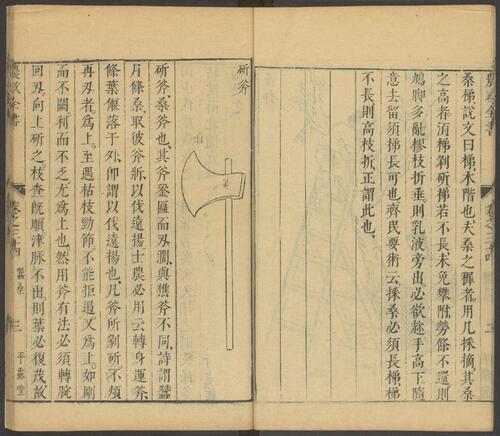 桑梯說文曰梯木階也夫桑之穉者用几採摘其桑
之高者須梯剝斫梯若不長未免攀附勞條不還則
鳩脚多亂樛枝折垂則乳液旁出必欲趁手高下隨
意去留須梯長可也齊民要術云採桑必須長梯梯
不長則高枝折正謂此也
斫斧
斫斧桑斧也其斧銎匾而刃濶與樵斧不同詩謂蠶
月條桑取彼斧斨以伐遠揚士農必用云轉身運斧
條葉偃落于外即謂以伐遠揚也凡斧所剝斫不煩
再刃者爲上至遇枯枝勁節不能拒遏又爲上如剛
而不闕利而不乏尤爲上也然用斧有法必須轉腕
回刃向上斫之枝查旣順津脉不出則葉必復茂故
農政全書
卷之三十四
蠶桑
三
平露堂